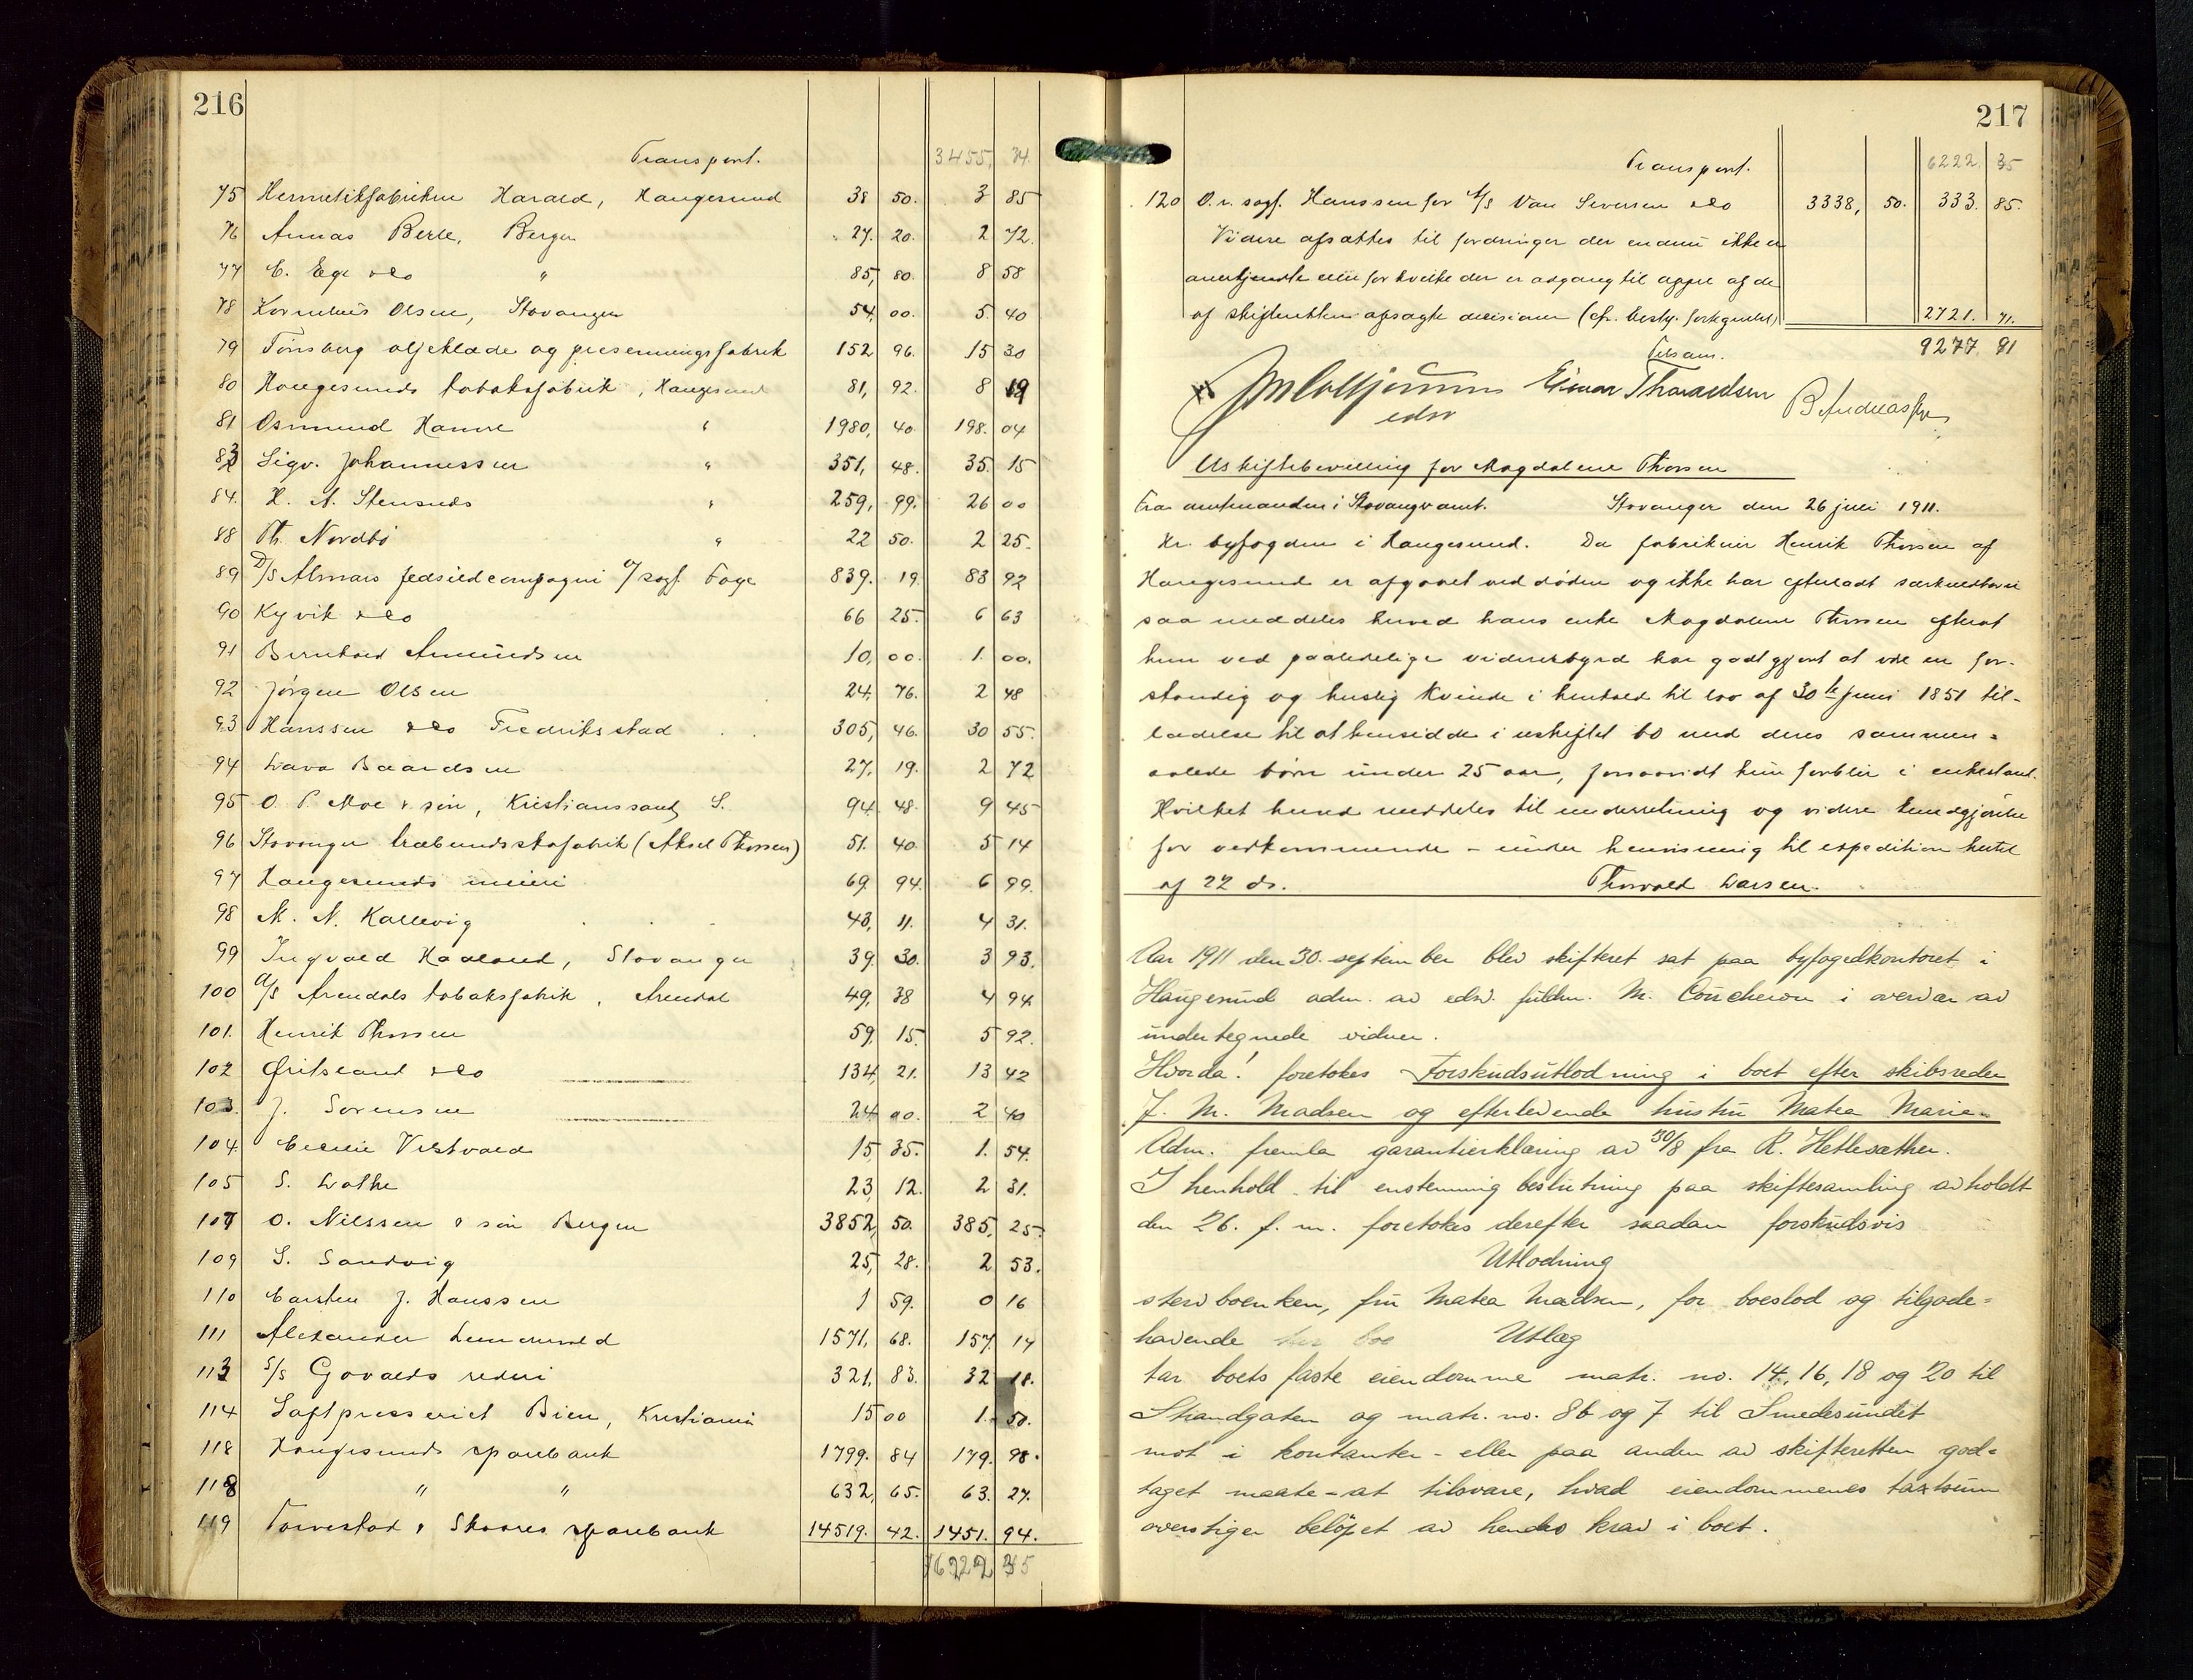 216
Transport. 3455, 34.
75 Hermetikfabriken Harald, Haugesund 38 50. 3 85
76 Annas Berle, Bergen 27. 20. 2 72.
77 C. Ege & Co " 85, 80. 8 58
78 Kornelius Olsen, Stavanger 54, 00. 5. 40
79 Tønsberg oljeklæde og presenningsfabrik 152 96. 15 30
80 Haugesunds tobaksfabrik, Haugesund 81, 92. 8 19
81 Osmund Hamre " 1980, 40 198. 04
83 Sigv. Johannessen " 351, 48. 35. 15
84. H. A. Stensnes " 259, 99. 26 00
88 Th. Nordbö " 22 50. 2 25.
89 D/S Almars fedsildcompagni v/ sagf Fage 839. 19. 83 92
90 Kyvik & Co 66 25. 6 63
91 Bernhard Amundsen 10, 00. 1. 00.
92 Jörgen Olsen 24, 76. 2 48
93 Hanssen & Co Fredriksstad 305, 46. 30 55.
94 Lava Baardsen 27, 19. 2 72
95 O. P. Moe & sön, Kristianssand S. 94. 48. 9 45
96 Stavanger træbundsskofabrik (Aksel Thorsen) 51. 40. 5 14
97 Haugesunds meieri 69, 94. 6 99.
98 M. N. Kallevig 43, 11. 4 31.
99 Ingvald Haaland, Stavanger 39. 30. 3 93.
100 A/S Arendals tobaksfabrik, Arendal 49, 38 4 94
101. Henrik Thorsen 59, 15. 5 92.
102 Gritsland & Co 134, 21. 13 42
103. J. Sörensen 24 00. 2 40
104. Cecilie Vestvold 15, 35. 1. 54.
105 S. Lothe 23, 12. 2 31.
107 O. Nilssen & sön Bergen 3852, 50. 385, 25.
109 S. Sandvig 25, 28. 2 53.
110 Carsten J. Hanssen 1 59. 0 16
111 Alexander Lunnevold 1571, 68. 157. 17
113 S/S Govalds rederi 321, 83. 32 18.
114 Saftpresseriet Bien, Kristiania 15 00 1. 50.
118 Haugesunds sparebank 1799. 84 179. 98.
118 " " 632, 65. 63. 27.
119 Torvestad & Skaares sparebank 14519. 42. 1451. 94.
6222 35
217
Transport. 6222. 35
120 O.r. sagf. Hanssen for A/S Van Seversen & Co 3338, 50. 333. 85.
Videre afsættes til fordringer der endnu ikke er
anerkjendte eller for hvilke der er adgang til appel af de
af skifteretten afsagte decisioner (cfr. bestyr. fortegnelse) 2721. 71.
Tilsam. 9277, 91
edsv Einar Tharaldsen B. Andreassen
Uskiftebevilling for Magdalene Thorsen
Fra amtmanden i Stavanger amt. Stavanger den 26 juli 1911.
Hr. byfogden i Haugesund. Da fabrikeier Henrik Thorsen af
Haugesund er afgaaet ved döden og ikke har efterladt særkuldbarn
saa meddeles herved hans enke Magdalene Thorsen efterat
hun ved paalidelige vidnesbyrd har godtgjort at være en for-
standig og huslig kvinde i henhold til lov af 30te juni 1851 til-
ladelse til at hensidde i uskiftet bo med deres sammen-
avlede börn under 25 aar, forsaavidt hun forblir i enkestand.
Hvilket herved meddeles til underretning og videre kundgjörelse
for vedkommende - under henvisning til expedition hertil
af 22 ds. Thorvald Larsen.
Aar 1911 den 30. september blev skifteret sat paa byfogedkontoret i
Haugesund adm. av edsv. fuldm. M. Coucheron i overvær av
undertegnede vidner.
Hvorda! foretokes Forskudsutlodning i boet efter skibsreder
J. M. Madsen og efterlevende hustru Matea Marie.
Adm. fremla garantierklæring av 30/8 fra R. Hetlesæther.
I henhold til enstemmig beslutning paa skiftesamling avholdt
den 26. f. m. foretokes derefter saadan forskudsvis
Utlodning
stervboenken, fru Matea Madsen, for boeslod og tilgode-
havende her boe Utlæg
tar boets faste eiendomme matr. no. 14, 16, 18 og 20 til
Strandgaten og matr. no. 8b og 7 til Smedesundet
mot i kontanter - eller paa anden av skifteretten god-
taget maate - at tilsvare, hvad eiendommenes taxtsum
overstiger belöpet av hendes krav i boet.